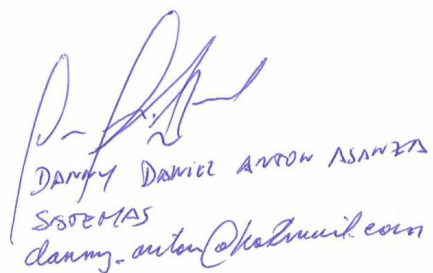 DANNY DANIEL ANTON ASANZA
SISTEMAS
danny_anton@hotmail.com